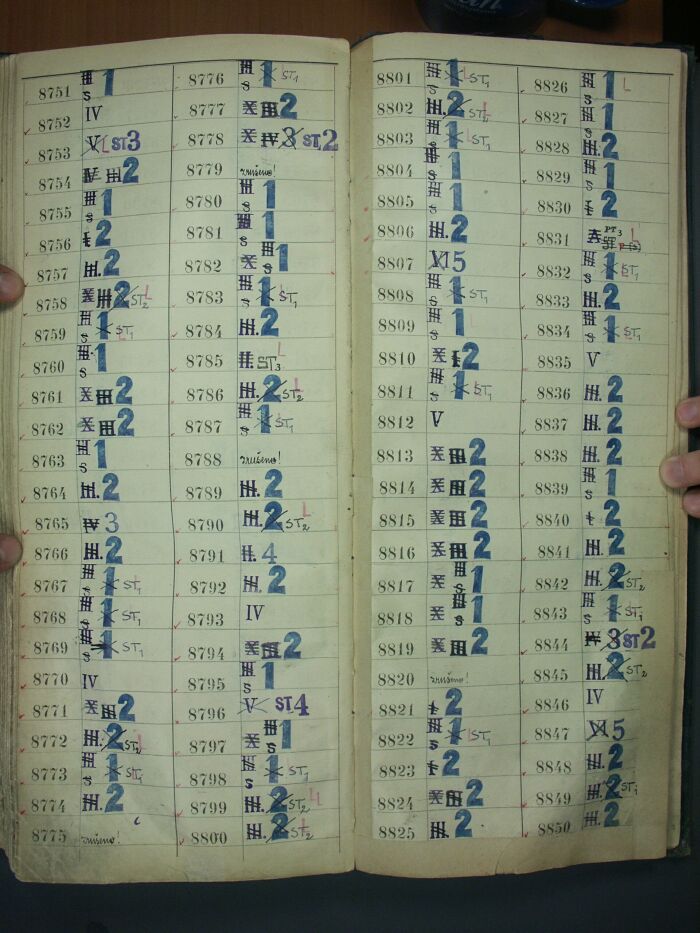 8751 III s 1
8752 IV
8753 V L ST3
8754 IV III 2
8755 III s 1
8756 I 2
8757 III. 2
8758 X III 2 ST2 L
8759 III s 1 ST1 L
8760 III s 1
8761 X III 2
8762 X III 2
8763 III s 1
8764 III. 2
8765 IV 3
8766 III. 2
8767 III s 1 ST1
8768 III s 1 ST1
8769 III s 1 ST1
8770 IV
8771 X III 2
8772 III. 2 ST2
8773 III s 1 ST1
8774 III. 2
8775 zrušeno!
8776 III s 1 ST1
8777 X III 2
8778 X IV 3 ST,2
8779 zrušeno!
8780 III s 1
8781 III s 1
8782 X III s 1
8783 III s 1 ST1
8784 III. 2
8785 II. ST3 L
8786 III. 2 ST2 L
8787 III s 1 ST1
8788 zrušeno!
8789 III. 2
8790 III. 2 ST2 L
8791 II. 4
8792 III. 2
8793 IV
8794 X III 2
8795 III s 1
8796 V ST4
8797 X III s 1
8798 III s 1 ST1
8799 III. 2 ST2 L
8800 III. 2 ST2 L
8801 III s 1 L ST1
8802 III. 2 ST2 L
8803 III s 1 L ST1
8804 III s 1
8805 III s 1
8806 III. 2
8807 VI 5
8808 III s 1 ST1
8809 III s 1 L
8810 X I 2
8811 III s 1 ST1
8812 V
8813 X III 2
8814 X III 2
8815 X III 2
8816 X III 2
8817 X III s 1
8818 X III s 1
8819 X III 2
8820 zrušeno!
8821 I 2
8822 III s 1 L ST1
8823 I 2
8824 X III 2
8825 III. 2
8826 III s 1 L
8827 III s 1
8828 III. 2
8829 III s 1
8830 I 2
8831 PT3 L
8832 III s 1 ST1
8833 III. 2
8834 III s 1 ST1
8835 V
8836 III. 2
8837 III. 2
8838 III. 2
8839 III s 1
8840 I 2
8841 III. 2
8842 III. 2 ST2
8843 III s 1 ST1
8844 IV 3 ST2
8845 III. 2 ST2
8846 IV
8847 VI 5
8848 III. 2
8849 III. 2 ST1
8850 III. 2